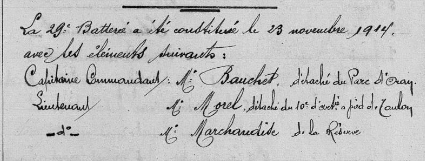 La 29e Batterie a été constituée le 23 novembre 1914.
avec les éléments suivants :
Capitaine Commandant : Mr. Bauchet, détaché du Parc d'Oran
Lieutenant Mr. Morel, détaché du 10e d'art. à pied de Toulon
— do — Mr. Marchandise de la Réserve